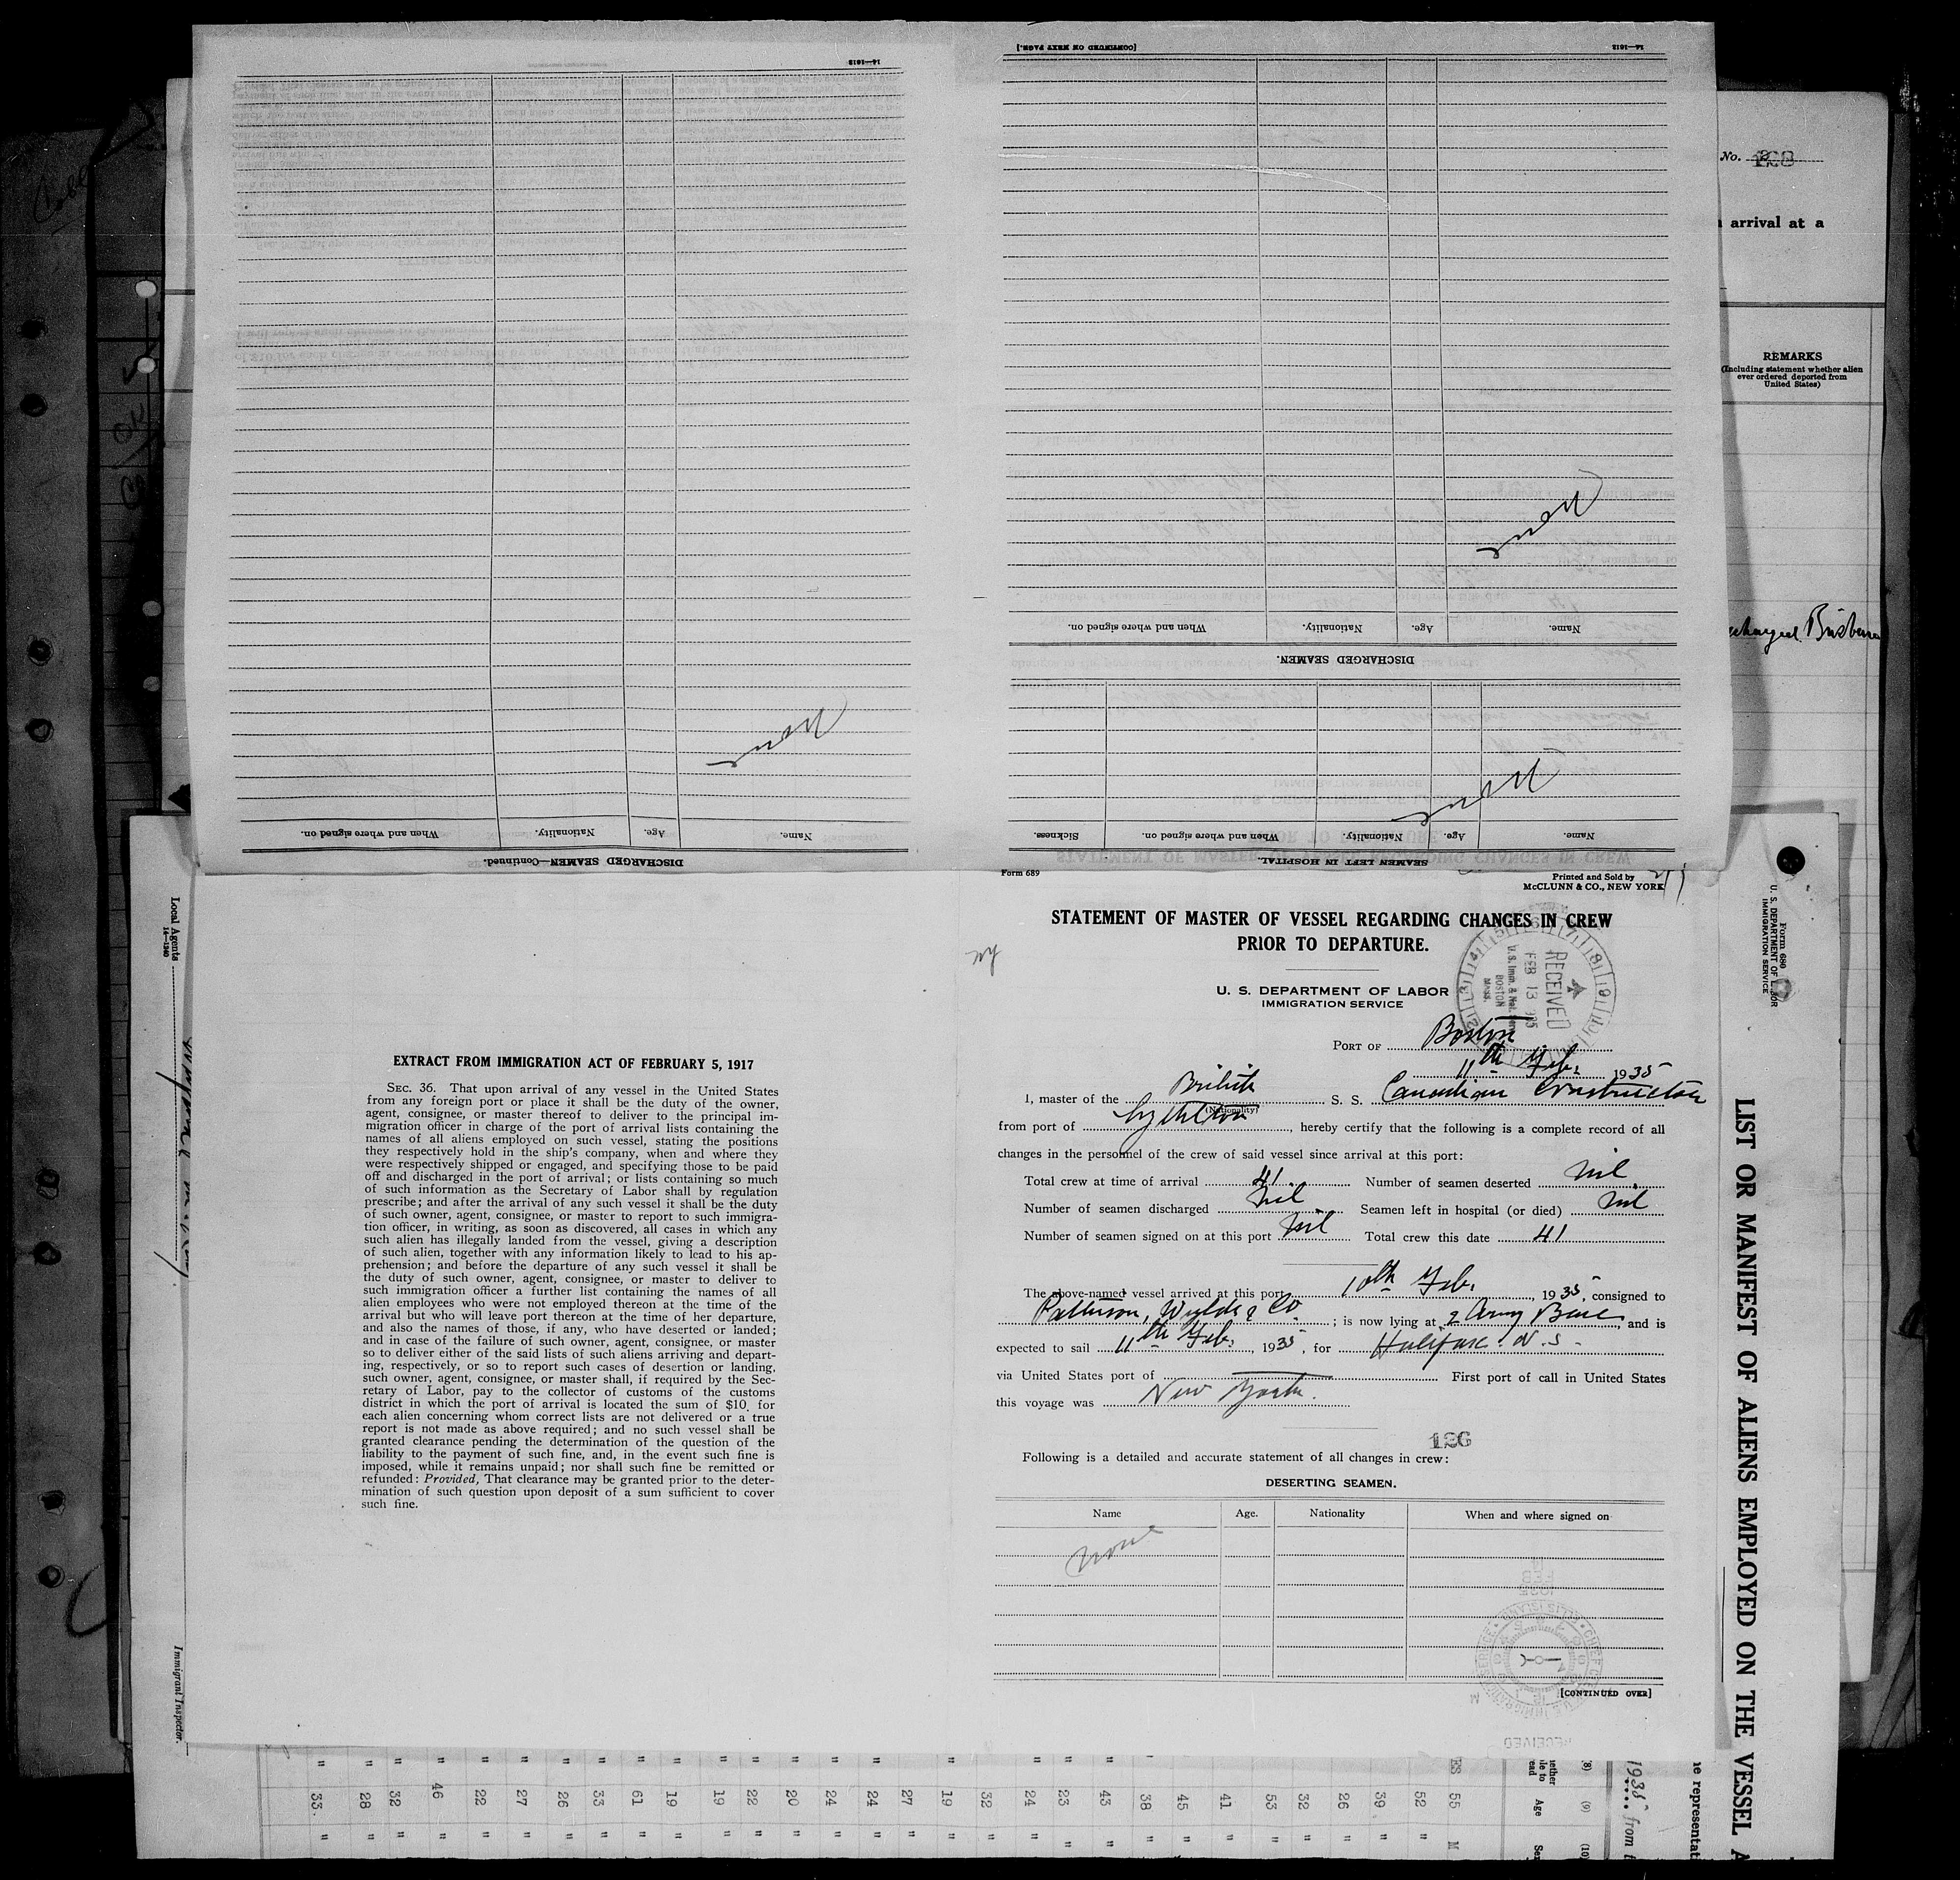 [CONTINUED ON NEXT PAGE.]
14—1612
14—1612
No. 128
arrival at a
REMARKS
(Including statement whether alien
ever ordered deported from
United States)
Brisbane
When and where signed on.
Nationality.
Age.
Name.
DISCHARGED SEAMEN—Continued.
None
None
When and where signed on.
Nationality.
Age.
Name.
DISCHARGED SEAMEN.
None
Sickness.
When and where signed on.
Nationality.
Age.
Name.
SEAMEN LEFT IN HOSPITAL.
Form 689
Printed and Sold by
McCLUNN & CO., NEW YORK
STATEMENT OF MASTER OF VESSEL REGARDING CHANGES IN CREW
PRIOR TO DEPARTURE.
U. S. DEPARTMENT OF LABOR
IMMIGRATION SERVICE
RECEIVED
FEB 13 1935
U. S. Imm. & Nat. Serv.
BOSTON
Mass.
PORT OF Boston
11th Feb. 1935
I, master of the British S. S. Canadian Constructor
(Nationality)
from port of Lyttelton, hereby certify that the following is a complete record of all
changes in the personnel of the crew of said vessel since arrival at this port:
Total crew at time of arrival 41 Number of seamen deserted nil
Number of seamen discharged nil Seamen left in hospital (or died) nil
Number of seamen signed on at this port nil Total crew this date 41
The above-named vessel arrived at this port 10th Feb. 1935, consigned to
Patterson, Wylde & Co. ; is now lying at 2 Army Base, and is
expected to sail 11th Feb. 1935, for Halifax. N.S.
via United States port of First port of call in United States
this voyage was New York.
126
Following is a detailed and accurate statement of all changes in crew:
DESERTING SEAMEN.
Name Age. Nationality When and where signed on
None
[CONTINUED OVER]
RECEIVED
EXTRACT FROM IMMIGRATION ACT OF FEBRUARY 5, 1917
SEC. 36. That upon arrival of any vessel in the United States
from any foreign port or place it shall be the duty of the owner,
agent, consignee, or master thereof to deliver to the principal im-
migration officer in charge of the port of arrival lists containing the
names of all aliens employed on such vessel, stating the positions
they respectively hold in the ship's company, when and where they
were respectively shipped or engaged, and specifying those to be paid
off and discharged in the port of arrival; or lists containing so much
of such information as the Secretary of Labor shall by regulation
prescribe; and after the arrival of any such vessel it shall be the duty
of such owner, agent, consignee, or master to report to such immigra-
tion officer, in writing, as soon as discovered, all cases in which any
such alien has illegally landed from the vessel, giving a description
of such alien, together with any information likely to lead to his ap-
prehension; and before the departure of any such vessel it shall be
the duty of such owner, agent, consignee, or master to deliver to
such immigration officer a further list containing the names of all
alien employees who were not employed thereon at the time of the
arrival but who will leave port thereon at the time of her departure,
and also the names of those, if any, who have deserted or landed;
and in case of the failure of such owner, agent, consignee, or master
so to deliver either of the said lists of such aliens arriving and depart-
ing, respectively, or so to report such cases of desertion or landing,
such owner, agent, consignee, or master shall, if required by the Sec-
retary of Labor, pay to the collector of customs of the customs
district in which the port of arrival is located the sum of $10 for
each alien concerning whom correct lists are not delivered or a true
report is not made as above required; and no such vessel shall be
granted clearance pending the determination of the question of the
liability to the payment of such fine, and, in the event such fine is
imposed, while it remains unpaid; nor shall such fine be remitted or
refunded: Provided, That clearance may be granted prior to the deter-
mination of such question upon deposit of a sum sufficient to cover
such fine.
Local Agents
14—1240
Immigrant Inspector.
Form 680
U. S. DEPARTMENT OF LABOR
IMMIGRATION SERVICE
LIST OR MANIFEST OF ALIENS EMPLOYED ON THE VESSEL A
33. 28 32 46 22 27 26 33 61 19 19 22 20 24 24 27 19 32 24 23 43 38 45 41 53 32 26 39 52 55
M
(8) (9) (10)
Age
1935 from